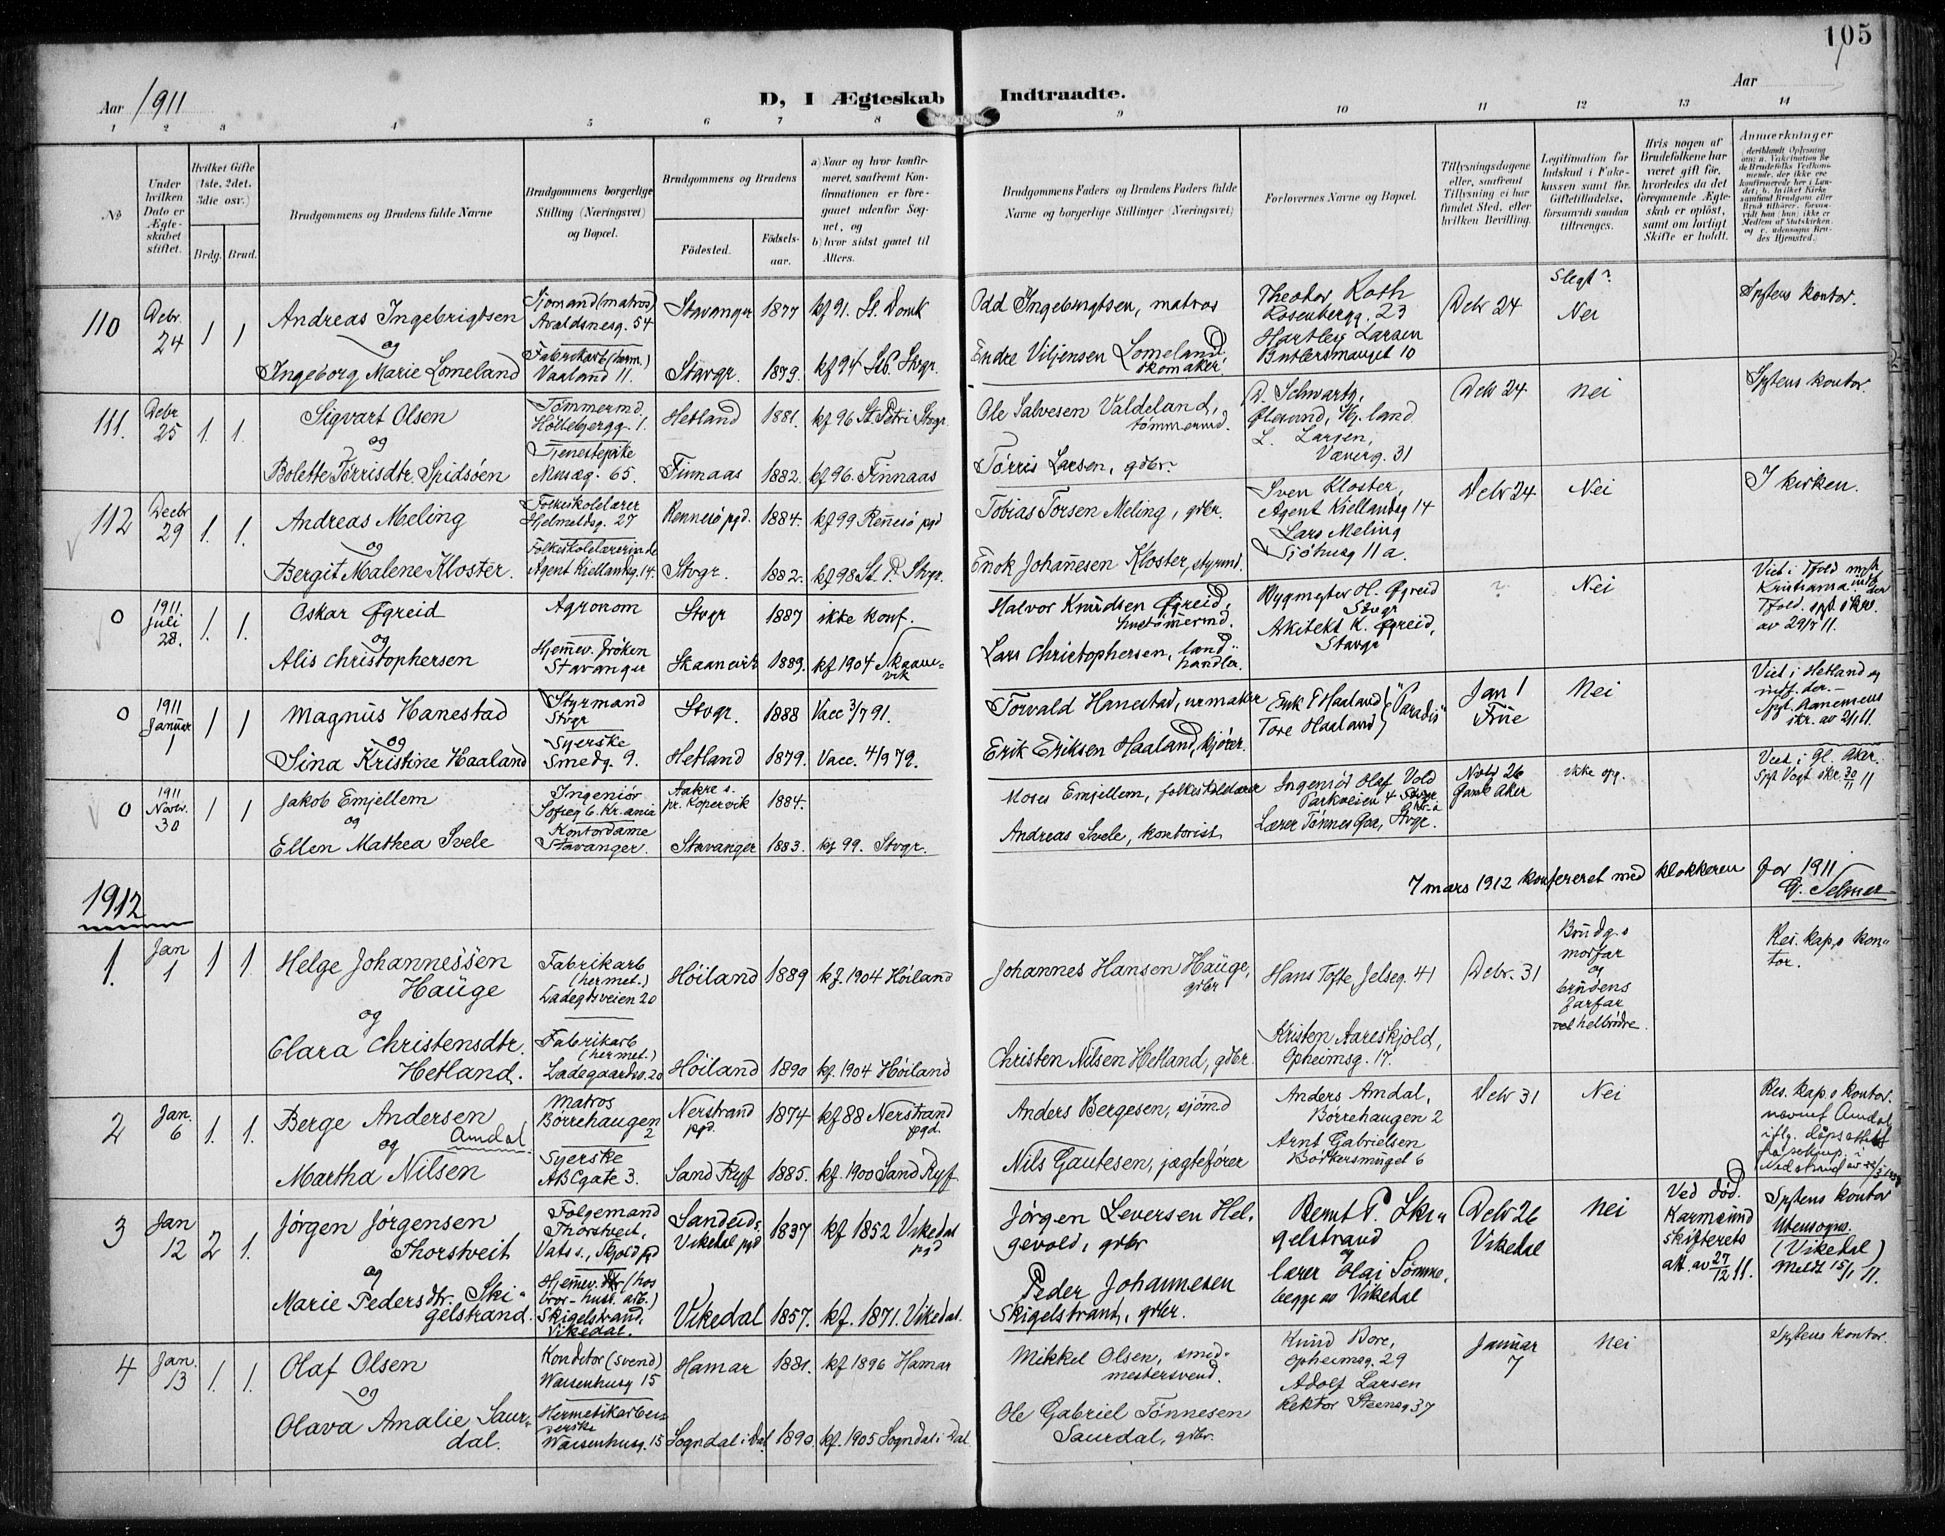 105
Aar 1911
D, I Ægteskab Indtraadte.
Aar
1 2 3 4 5 6 7 8 9 10 11 12 13 14
No
Under hvilken Dato er Ægteskabet stiftet.
Hvilket Gifte (1ste, 2det, 3die osv.)
Brdg. Brud.
Brudgommens og Brudens fulde Navne
Brudgommens borgerlige Stilling (Næringsvei) og Bopæl.
Brudgommens og Brudens
Fødested. Fødselsaar.
a) Naar og hvor konfirmeret, saafremt Konfirmationen er foregaaet udenfor Sognet, og
b) hvor sidst gaaet til Alters.
Brudgommens Faders og Brudens Faders fulde Navne og borgerlige Stillinger (Næringsvei)
Forlovernes Navne og Bopæl.
Tillysningsdagene eller, saafremt Tillysning ei har fundet Sted, efter hvilken Bevilling.
Legitimation for Indskud i Enkekassen samt for Giftetilladelse, forsaavidt saadan tiltrænges.
Hvis nogen af Brudefolkene har været gift før, hvorledes da det foregaaende Ægteskab er opløst, samt om lovligt Skifte er holdt.
Anmærkninger
110 Debr. 24 1 1 Andreas Ingebrigtsen
Sjømand (matros) Avaldsnesg. 54 Stavanger 1877 kf 91. St. Domk
Odd Ingebrigtsen, matros
Theodor Roth Rosenbergg. 23 Debr 24 Slegt? Nei Sptens kontor.
og
Ingeborg Marie Lomeland
Fabrikarb (herm.) Vaaland 11. Stavgr. 1879. kf 94 Stvgr.
Endre Viljensen Lomeland, skomaker.
Hartley Larsen 10
111. Debr 25 1. 1. Sigvart Olsen
Tømmermd. Høllebergg. 1. Hetland 1881. kf 96 St. Petri Stvgr.
Ole Salvesen Valdeland, tømmermd.
Debr 24 Nei Sptens kontor.
og
Bolette Tørrisdtr. Spidsøen
Tjenestepike Musæg. 65. Finnaas 1882. kf 96. Finnaas
Tørris Larsen, gdbr.
L. Larsen, Væverg. 31
112 Decbr 29 1. 1. Andreas Meling
Folkeskolelærer Helmeldsg. 27 Rennesø pgd. 1884. kf 99 Rennesø pgd
Tobias Torsen Meling, gdbr.
Sven Kloster, Agent Kiellandsg 14 Debr 24 Nei I kirken.
og
Bergit Malene Kloster.
Folkeskolelærerinde Agent Kiellandsg. 14. Stvgr. 1882. kf 98 St. P. Stvgr.
Enok Johannesen Kloster, styrmd.
Lars Meling Sjøhusg 11 a.
0 1911. Juli 28. 1. 1. Oskar Øgreid
Agronom Stvgr 1887 ikke konf.
Halvor Knudsen Øgreid, hustømermd.
Bygmester H. Øgreid Stvgr ? Nei
og
Alis Christophersen
Hjemmev. frøken Stavanger Skaanevik 1889. kf 1904 Skaanevik
Lars Christophersen, landhandler.
Arkitekt K. Øgreid, Stavgr
av 29/7 11.
0 1911 Januar 1 1 1 Magnus Hanestad
Styrmand Stvgr Stvgr. 1888 Vacc 3/7 91.
Torvald Hanestad, urmaker
Erik T Haaland Tore Haaland "Paradis" Jan 1 Frue Nei
Viet i Hetland og
og
Sina Kristine Haaland
Syerske Smedg 9. Hetland 1879. Vacc. 4/9 79.
Erik Eriksen Haaland, kjører.
skr. av 2/1 11.
0 1911 Novbr. 30 1 1 Jakob Emjellem
Ingeniør Sofieg 6. Kr.ania Aakre s. pr. Kopervik 1884.
Moses Emjellem, folkeskolelærer
Ingeniør Olaf Vold Parkveien 4 Novbr 26 Gamle Aker ikke opg.
Viet i Gl. Aker. Spt Vogt skr. 30/11 11
og
Ellen Mathea Svele
Kontordame Stavanger. Stavanger 1883. kf 99. Stvgr.
Andreas Svele, kontorist
Lærer Tønnes Goa, Stvgr.
7 mars 1912 konfereret med klokkeren for 1911
G. Selmer
1912
1. Jan 1 1 1. Helge Johannessen Hauge
Fabrikarb (hermet.) Ladegdsveien 20 Høiland 1889 kf. 1904 Høiland
Johannes Hansen Hauge, gdbr
Hans Tofte, Jelseg. 41 Debr. 31 Brudg.s morfar og brudens farfar var helbrødre.
Res. kap.s kontor.
og
Clara Christensdtr. Hetland.
Fabrikarb (hermet.) Ladegaardsv. 20 Høiland 1890 kf. 1904 Høiland
Christen Nilsen Hetland, gdbr.
Kristen Aareskjold, Opheimsg. 17.
2 Jan. 6 1. 1. Berge Andersen Amdal
Matros Børrehaugen 2 Nerstrand pgd. 1874 kf 88 Nerstrand pgd.
Anders Bergesen, sjømd
Anders Amdal, Børrehaugen 2 Debr 31 Nei
Res. kap.s kontor.
og
Martha Nilsen
Syerske ABCgate 3. Sand Ryf 1885. kf. 1900 Sand Ryf.
Nils Gautesen, jægtefører
Arnt Gabrielsen Bødkersmuget 6
3 Jan 12 2 1. Jørgen Jørgensen Thorstveit
Følgemand Thorstveit, Vats s., Skjold pgd Sandeid s. Vikedal pgd 1837 kf 1852 Vikedal pgd
Jørgen Leversen Helgevold, gdbr
Bernt P. Skigelstrand og Debr 26 Vikedal Nei
Ved død. Karmsund skifterets att. av 27/12 11.
Sptens kontor Utensogns. (Vikedal) Meldt 15/1 11.
og
Marie Pedersdtr. Skigelstrand.
Skigelstrand, Vikedal. Vikedal 1857. kf. 1871. Vikedal.
Peder Johannesen Skigelstrand, gdbr.
lærer Olai Sømme, begge av Vikedal
4 Jan. 13 1. 1. Olaf Olsen
Konditor (svend) Waisenhusg 15 Hamar 1881. kf 1896 Hamar
Mikkel Olsen, smedmestersvend.
Knud Bore, Opheimsg. 29 Januar 7 Nei Sptens kontor.
og
Olava Amalie Saurdal.
Hermetikarbeiderske Waisenhusg. 15 Sogndal i Dal 1890. kf. 1905 Sogndal i Dal
Ole Gabriel Tønnesen Saurdal, gdbr.
Adolf Larsen Rektor Steensg 37